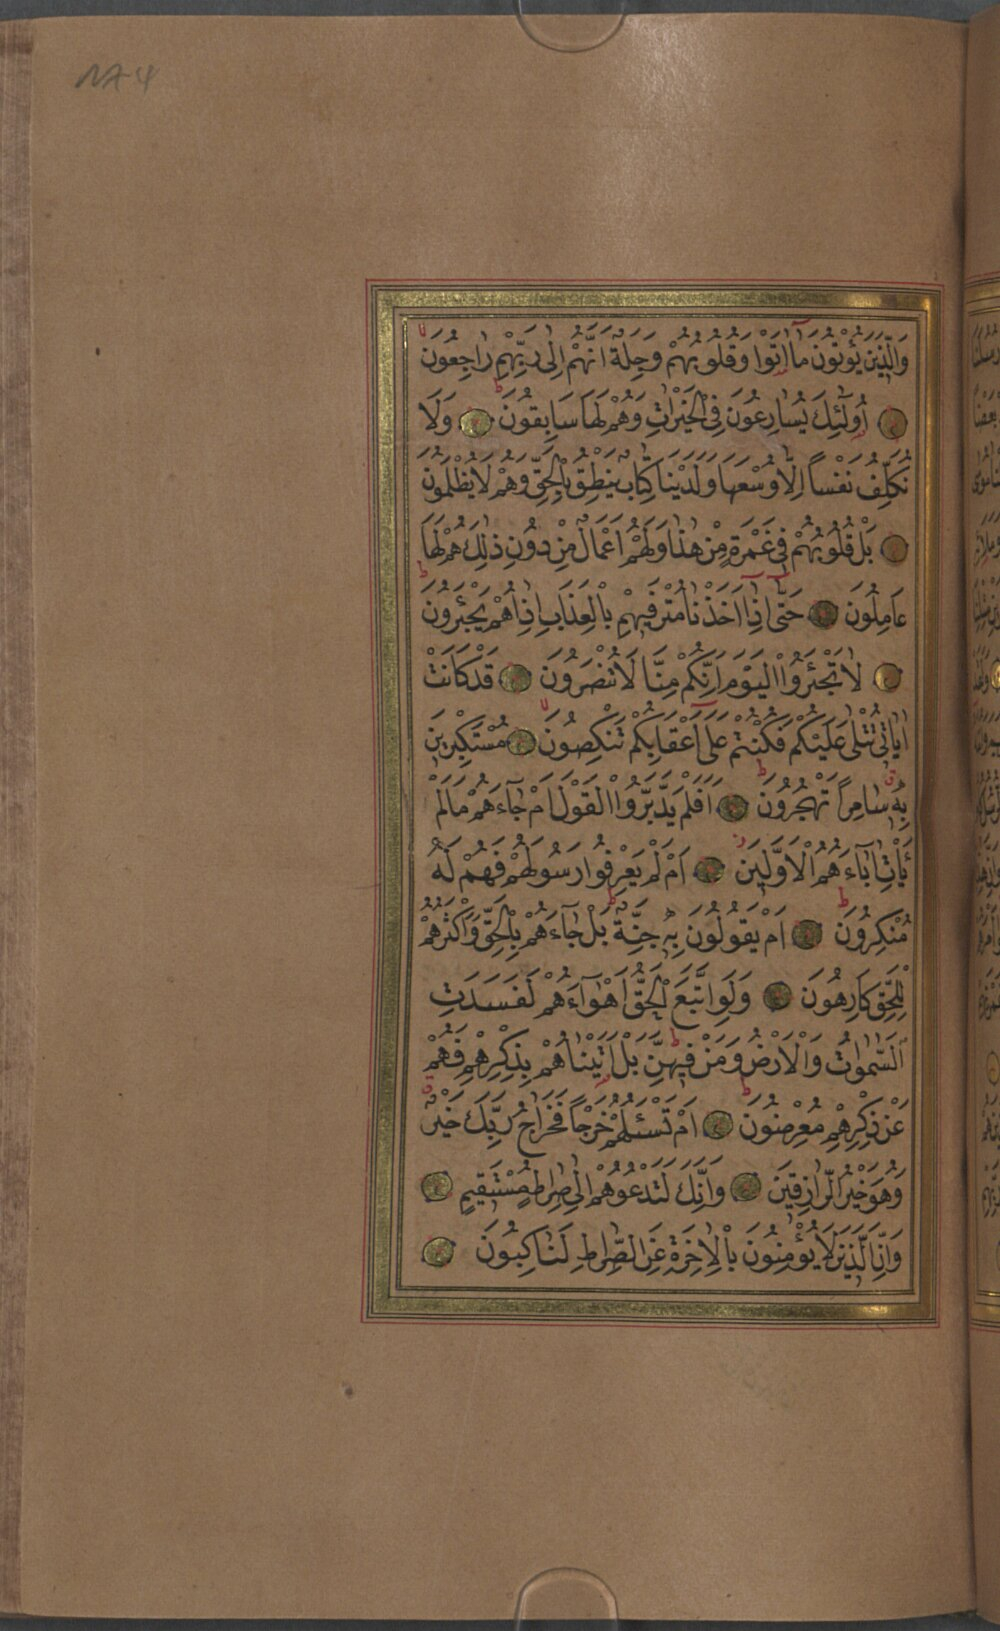 وَالَّذِينَ يُؤْتُونَ مَآ اٰتَوْا وَقُلُوبُهُمْ وَجِلَةٌ اَنَّهُمْ اِلٰى رَبِّهِمْ رَاجِعُونَ
اُولٰٓئِكَ يُسَارِعُونَ فِى الْخَيْرَاتِ وَهُمْ لَهَا سَابِقُونَ وَلَا
نُكَلِّفُ نَفْساً اِلَّا وُسْعَهَا وَلَدَيْنَا كِتَابٌ يَنْطِقُ بِالْحَقِّ وَهُمْ لَا يُظْلَمُونَ
بَلْ قُلُوبُهُمْ فِى غَمْرَةٍ مِنْ هٰذَا وَلَهُمْ اَعْمَالٌ مِنْ دُونِ ذٰلِكَ هُمْ لَهَا
عَامِلُونَ حَتّٰٓى اِذَآ اَخَذْنَا مُتْرَفِيهِمْ بِالْعَذَابِ اِذَا هُمْ يَجْئَرُونَ
لَا تَجْئَرُوا الْيَوْمَ اِنَّكُمْ مِنَّا لَا تُنْصَرُونَ قَدْ كَانَتْ
اٰيَاتِى تُتْلٰى عَلَيْكُمْ فَكُنْتُمْ عَلٰٓى اَعْقَابِكُمْ تَنْكِصُونَ مُسْتَكْبِرِينَ
بِهِ سَامِراً تَهْجُرُونَ اَفَلَمْ يَدَّبَّرُوا الْقَوْلَ اَمْ جَآءَهُمْ مَالَمْ
يَأْتِ اٰبَآءَهُمُ الْاَوَّلِينَ اَمْ لَمْ يَعْرِفُوا رَسُولَهُمْ فَهُمْ لَهُ
مُنْكِرُونَ اَمْ يَقُولُونَ بِهِ جِنَّةٌ بَلْ جَآءَهُمْ بِالْحَقِّ وَاَكْثَرُهُمْ
لِلْحَقِّ كَارِهُونَ وَلَوِ اتَّبَعَ الْحَقُّ اَهْوَآءَهُمْ لَفَسَدَتِ
السَّمٰوَاتُ وَالْاَرْضُ وَمَنْ فِيهِنَّ بَلْ اَتَيْنَاهُمْ بِذِكْرِهِمْ فَهُمْ
عَنْ ذِكْرِهِمْ مُعْرِضُونَ اَمْ تَسْئَلُهُمْ خَرْجاً فَخَرَاجُ رَبِّكَ خَيْرٌ
وَهُوَ خَيْرُ الرَّازِقِينَ وَاِنَّكَ لَتَدْعُوهُمْ اِلٰى صِرَاطٍ مُسْتَقِيمٍ
وَاِنَّ الَّذِينَ لَا يُؤْمِنُونَ بِالْاٰخِرَةِ عَنِ الصِّرَاطِ لَنَاكِبُونَ